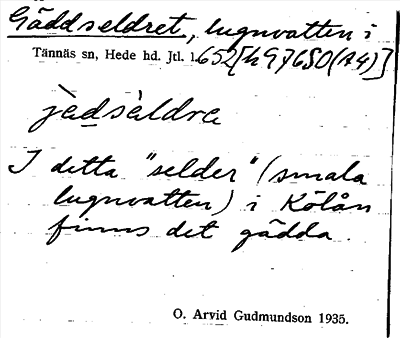 Gäddseldret, lugnvatten i
Tännäs sn, Hede hd. Jtl. l.652[h97650(A4)]
jèdsàldra
I detta "selder" (smala
lugnvatten) i Kölån
finns det gädda.
O. Arvid Gudmundson 1935.